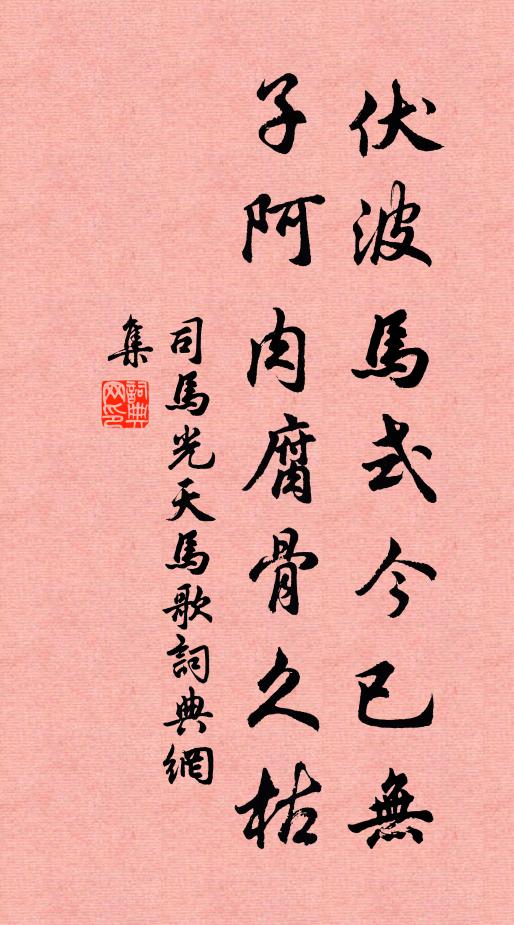 伏波馬式今已無
子阿肉腐骨久枯
司馬光天馬歌詞典網
集
詞典
網印